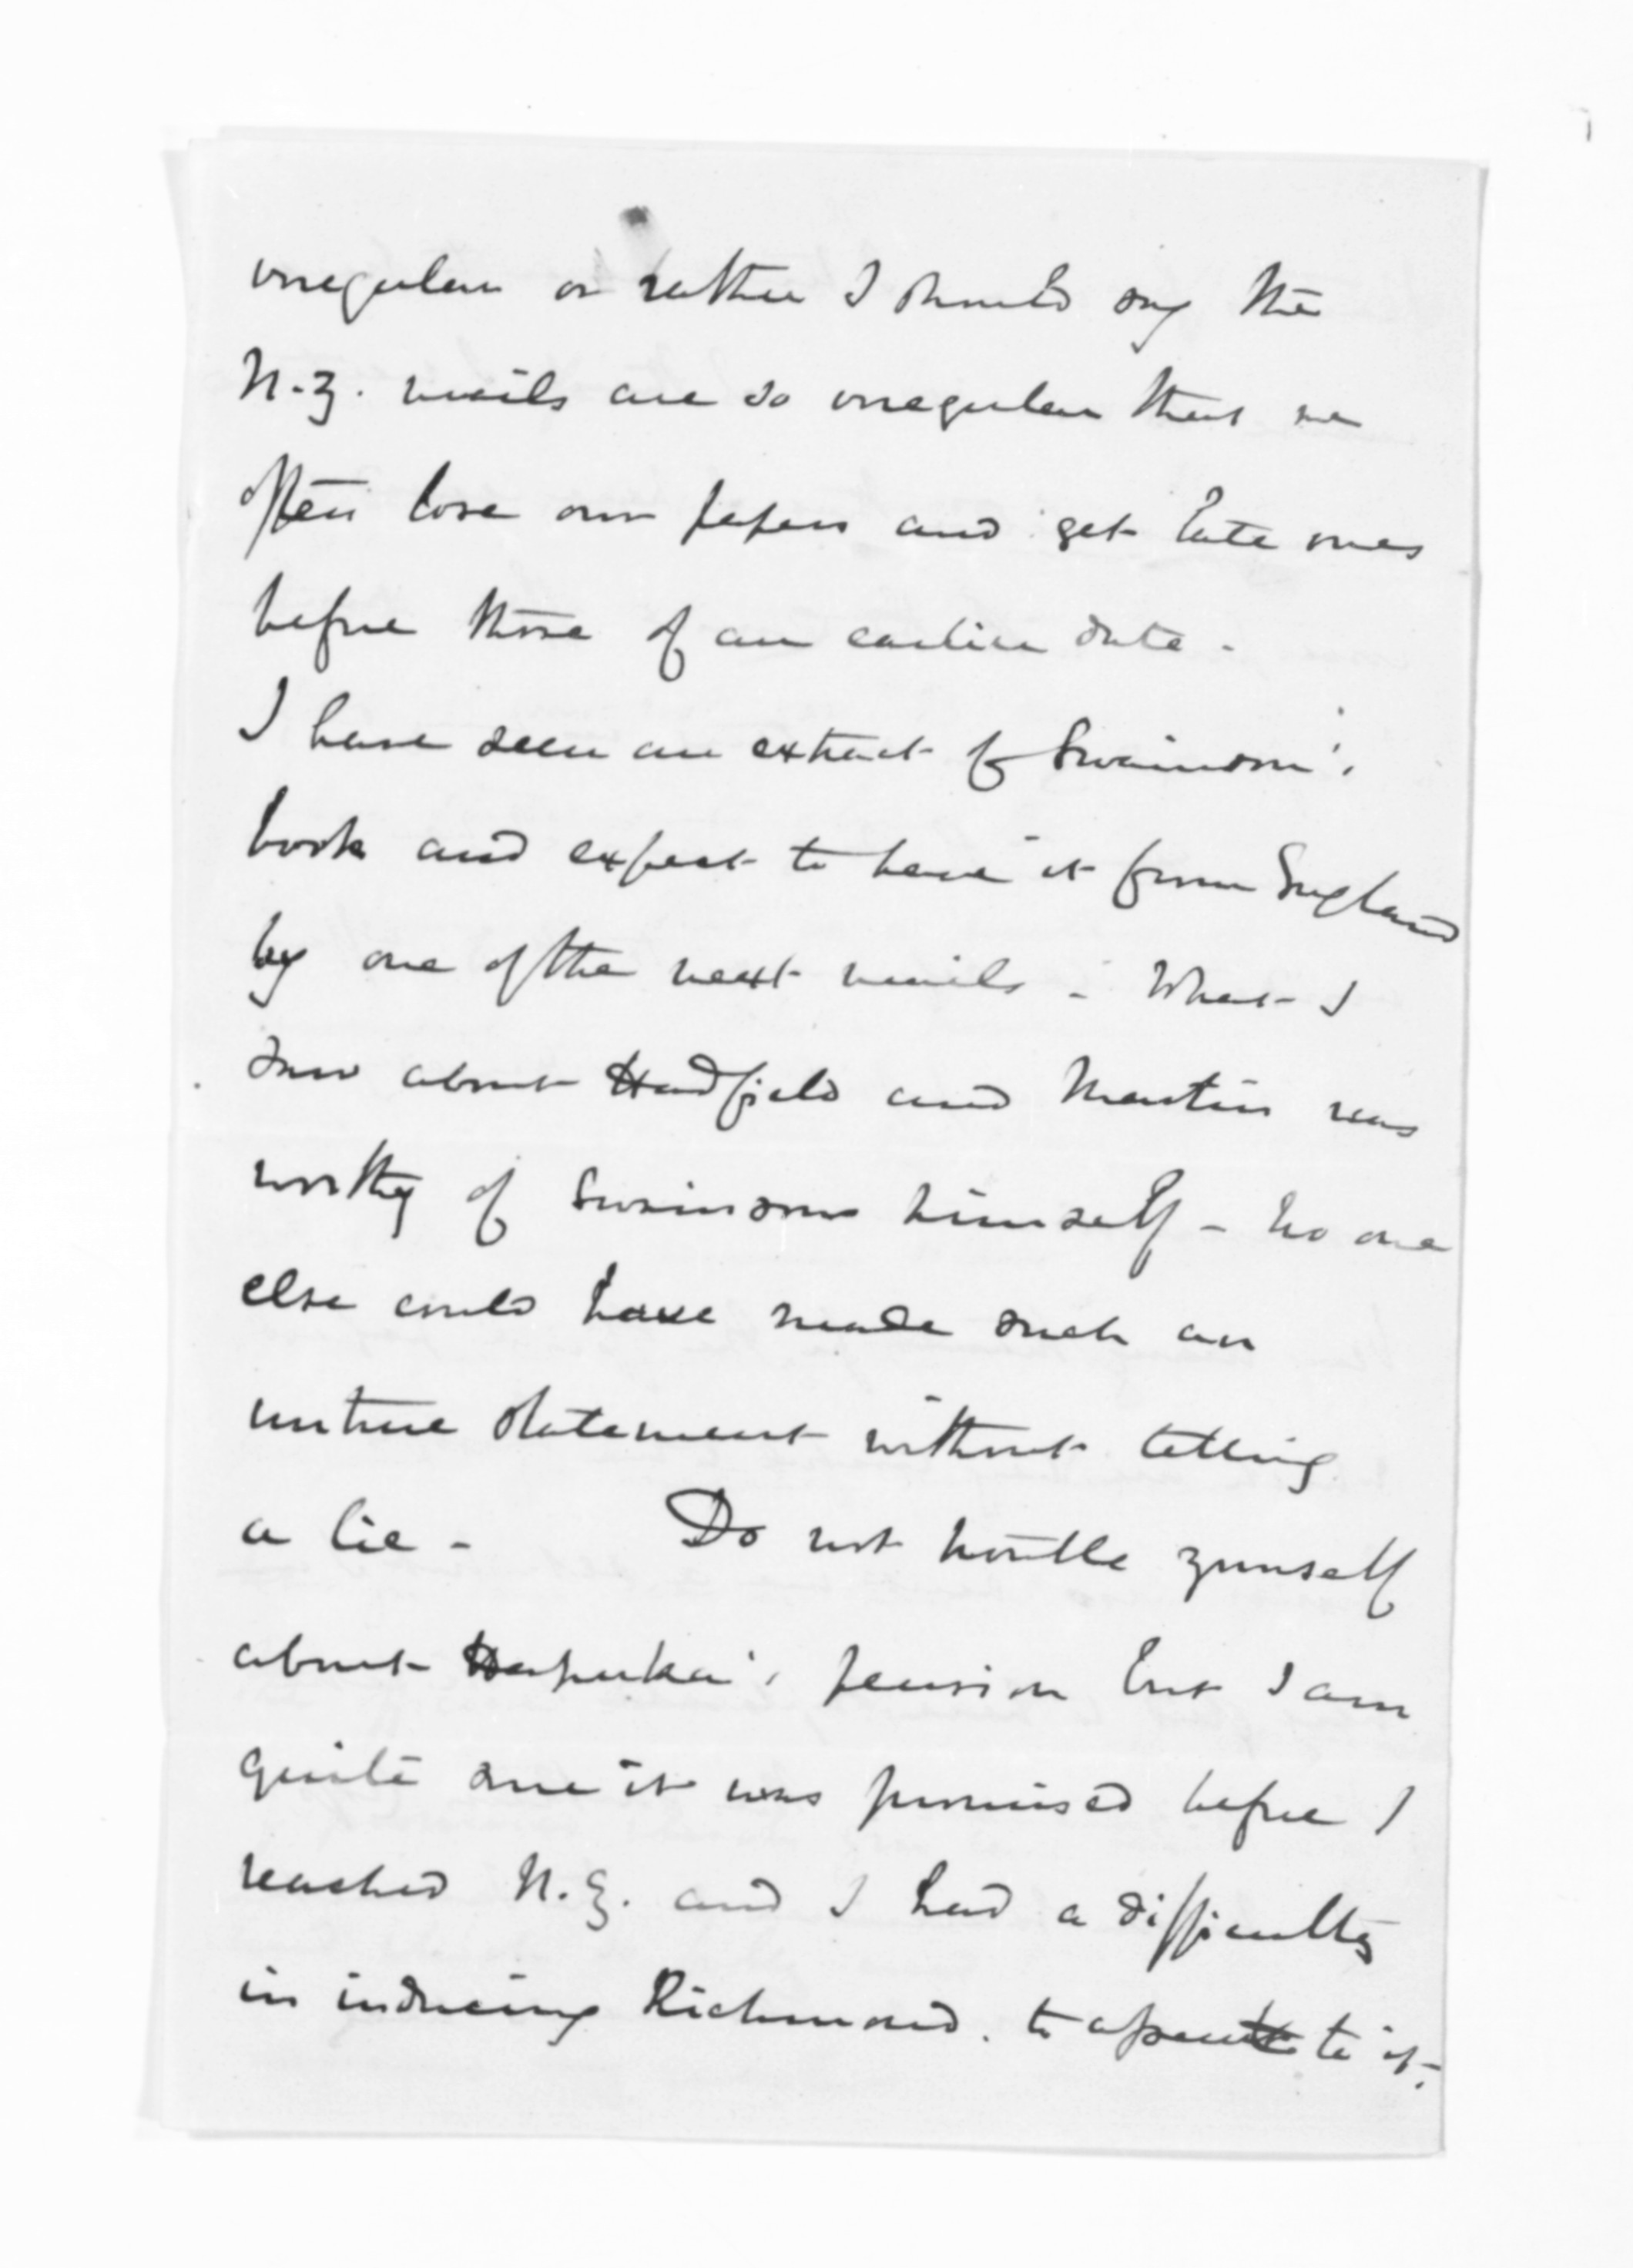 irregular or rather I should say the
N.Z. mails are so irregular that we
often lose our papers and get late ones
before those of an earlier date -
I have seen an extract of Swainson's
book and expect to have it from England
by one of the next mails - What I
saw about Hadfield and Martin was
worthy of Swainson himself - no one
else could have made such an
untrue statement without telling
a lie - Do not trouble yourself
about Hapuka's pension but I am
quite sure it was promised before I
reached N.Z. and I had a difficulty
in inducing Richmond to to it.